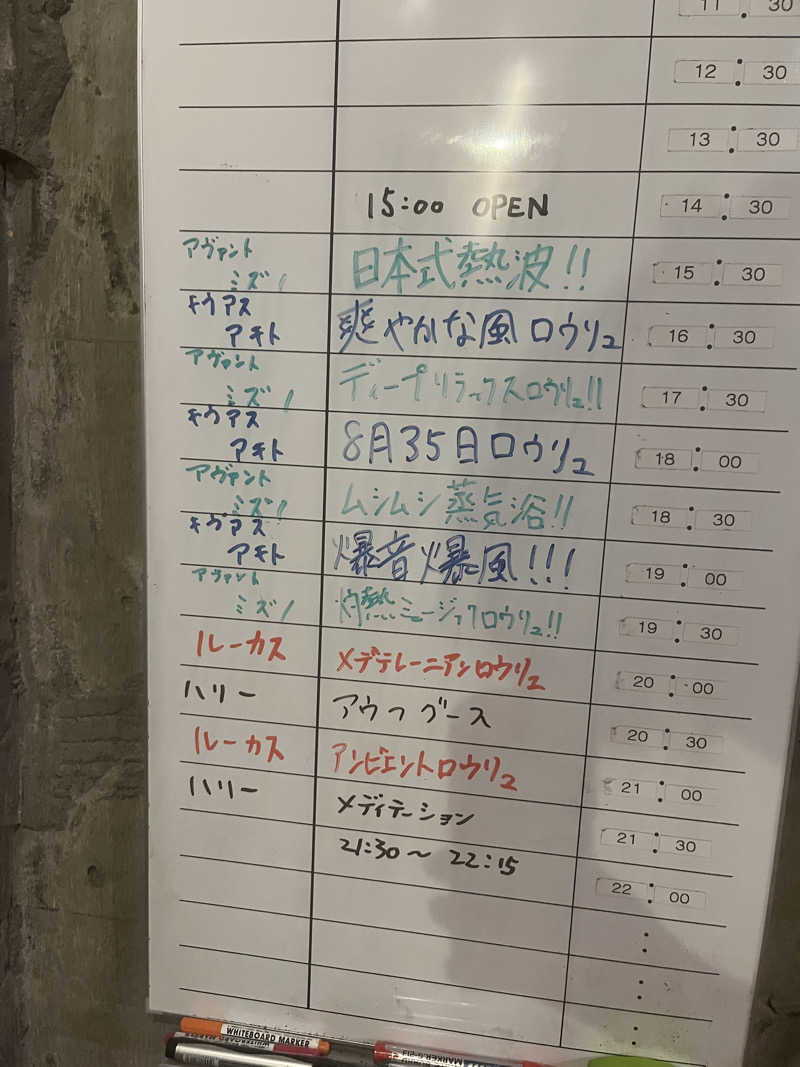 11 : 30
12 : 30
13 : 30
15:00 OPEN 14 : 30
アヴァント
ミズノ 日本式熱波!! 15 : 30
キウアス
アキト 爽やかな風ロウリュ 16 : 30
アヴァント
ミズノ ディープリラックスロウリュ!! 17 : 30
キウアス
アキト 8月35日ロウリュ 18 : 00
アヴァント
ミズノ ムシムシ蒸気浴!! 18 : 30
キウアス
アキト 爆音爆風!!! 19 : 00
アヴァント
ミズノ 灼熱ミュージックロウリュ!! 19 : 30
ルーカス メデテレーニアンロウリュ 20 : 00
ハリー アウフグース 20 : 30
ルーカス アンビエントロウリュ 21 : 00
ハリー メディテーション 21 : 30
21:30〜22:15 22 : 00
WHITEBOARD MARKER